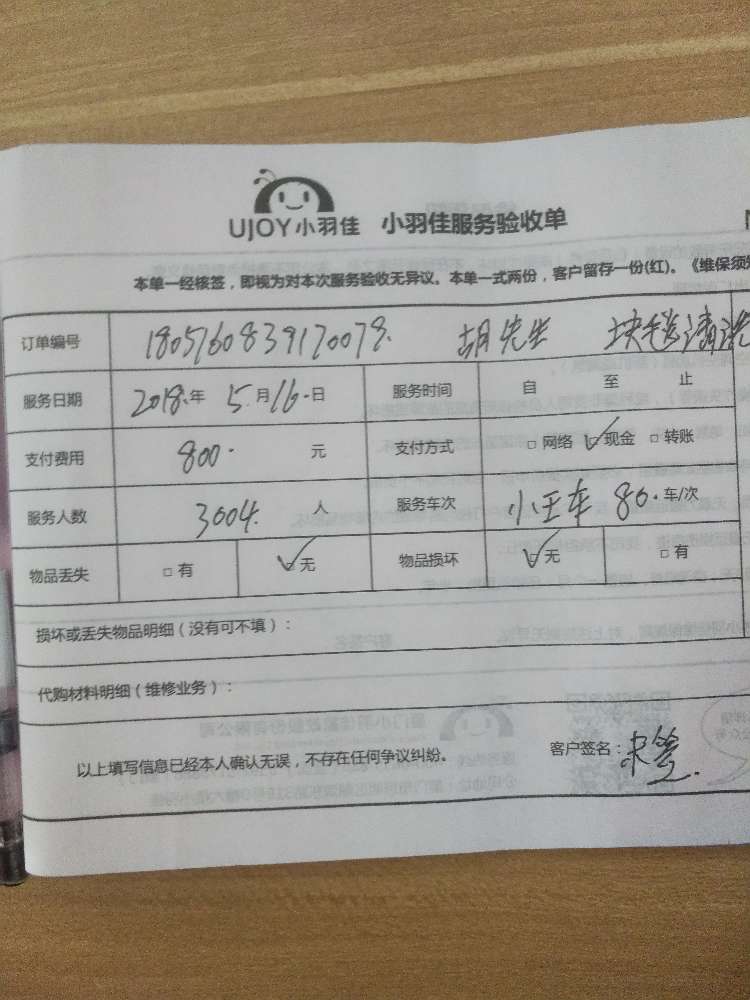 UJOY小羽佳 小羽佳服务验收单
本单一经核签，即视为对本次服务验收无异议。本单一式两份，客户留存一份(红)。《维保须知
订单编号 180516083917007 胡先生 块毯清洗
服务日期 2018.年 5.月16.日 服务时间 自 至 止
支付费用 800. 元 支付方式 □网络 ☑现金 □转账
服务人数 3004. 人 服务车次 小王车 80.车/次
物品丢失 □有 ☑无 物品损坏 ☑无 □有
损坏或丢失物品明细（没有可不填）：
代购材料明细（维修业务）：
以上填写信息已经本人确认无误，不存在任何争议纠纷。 客户签名：未签.